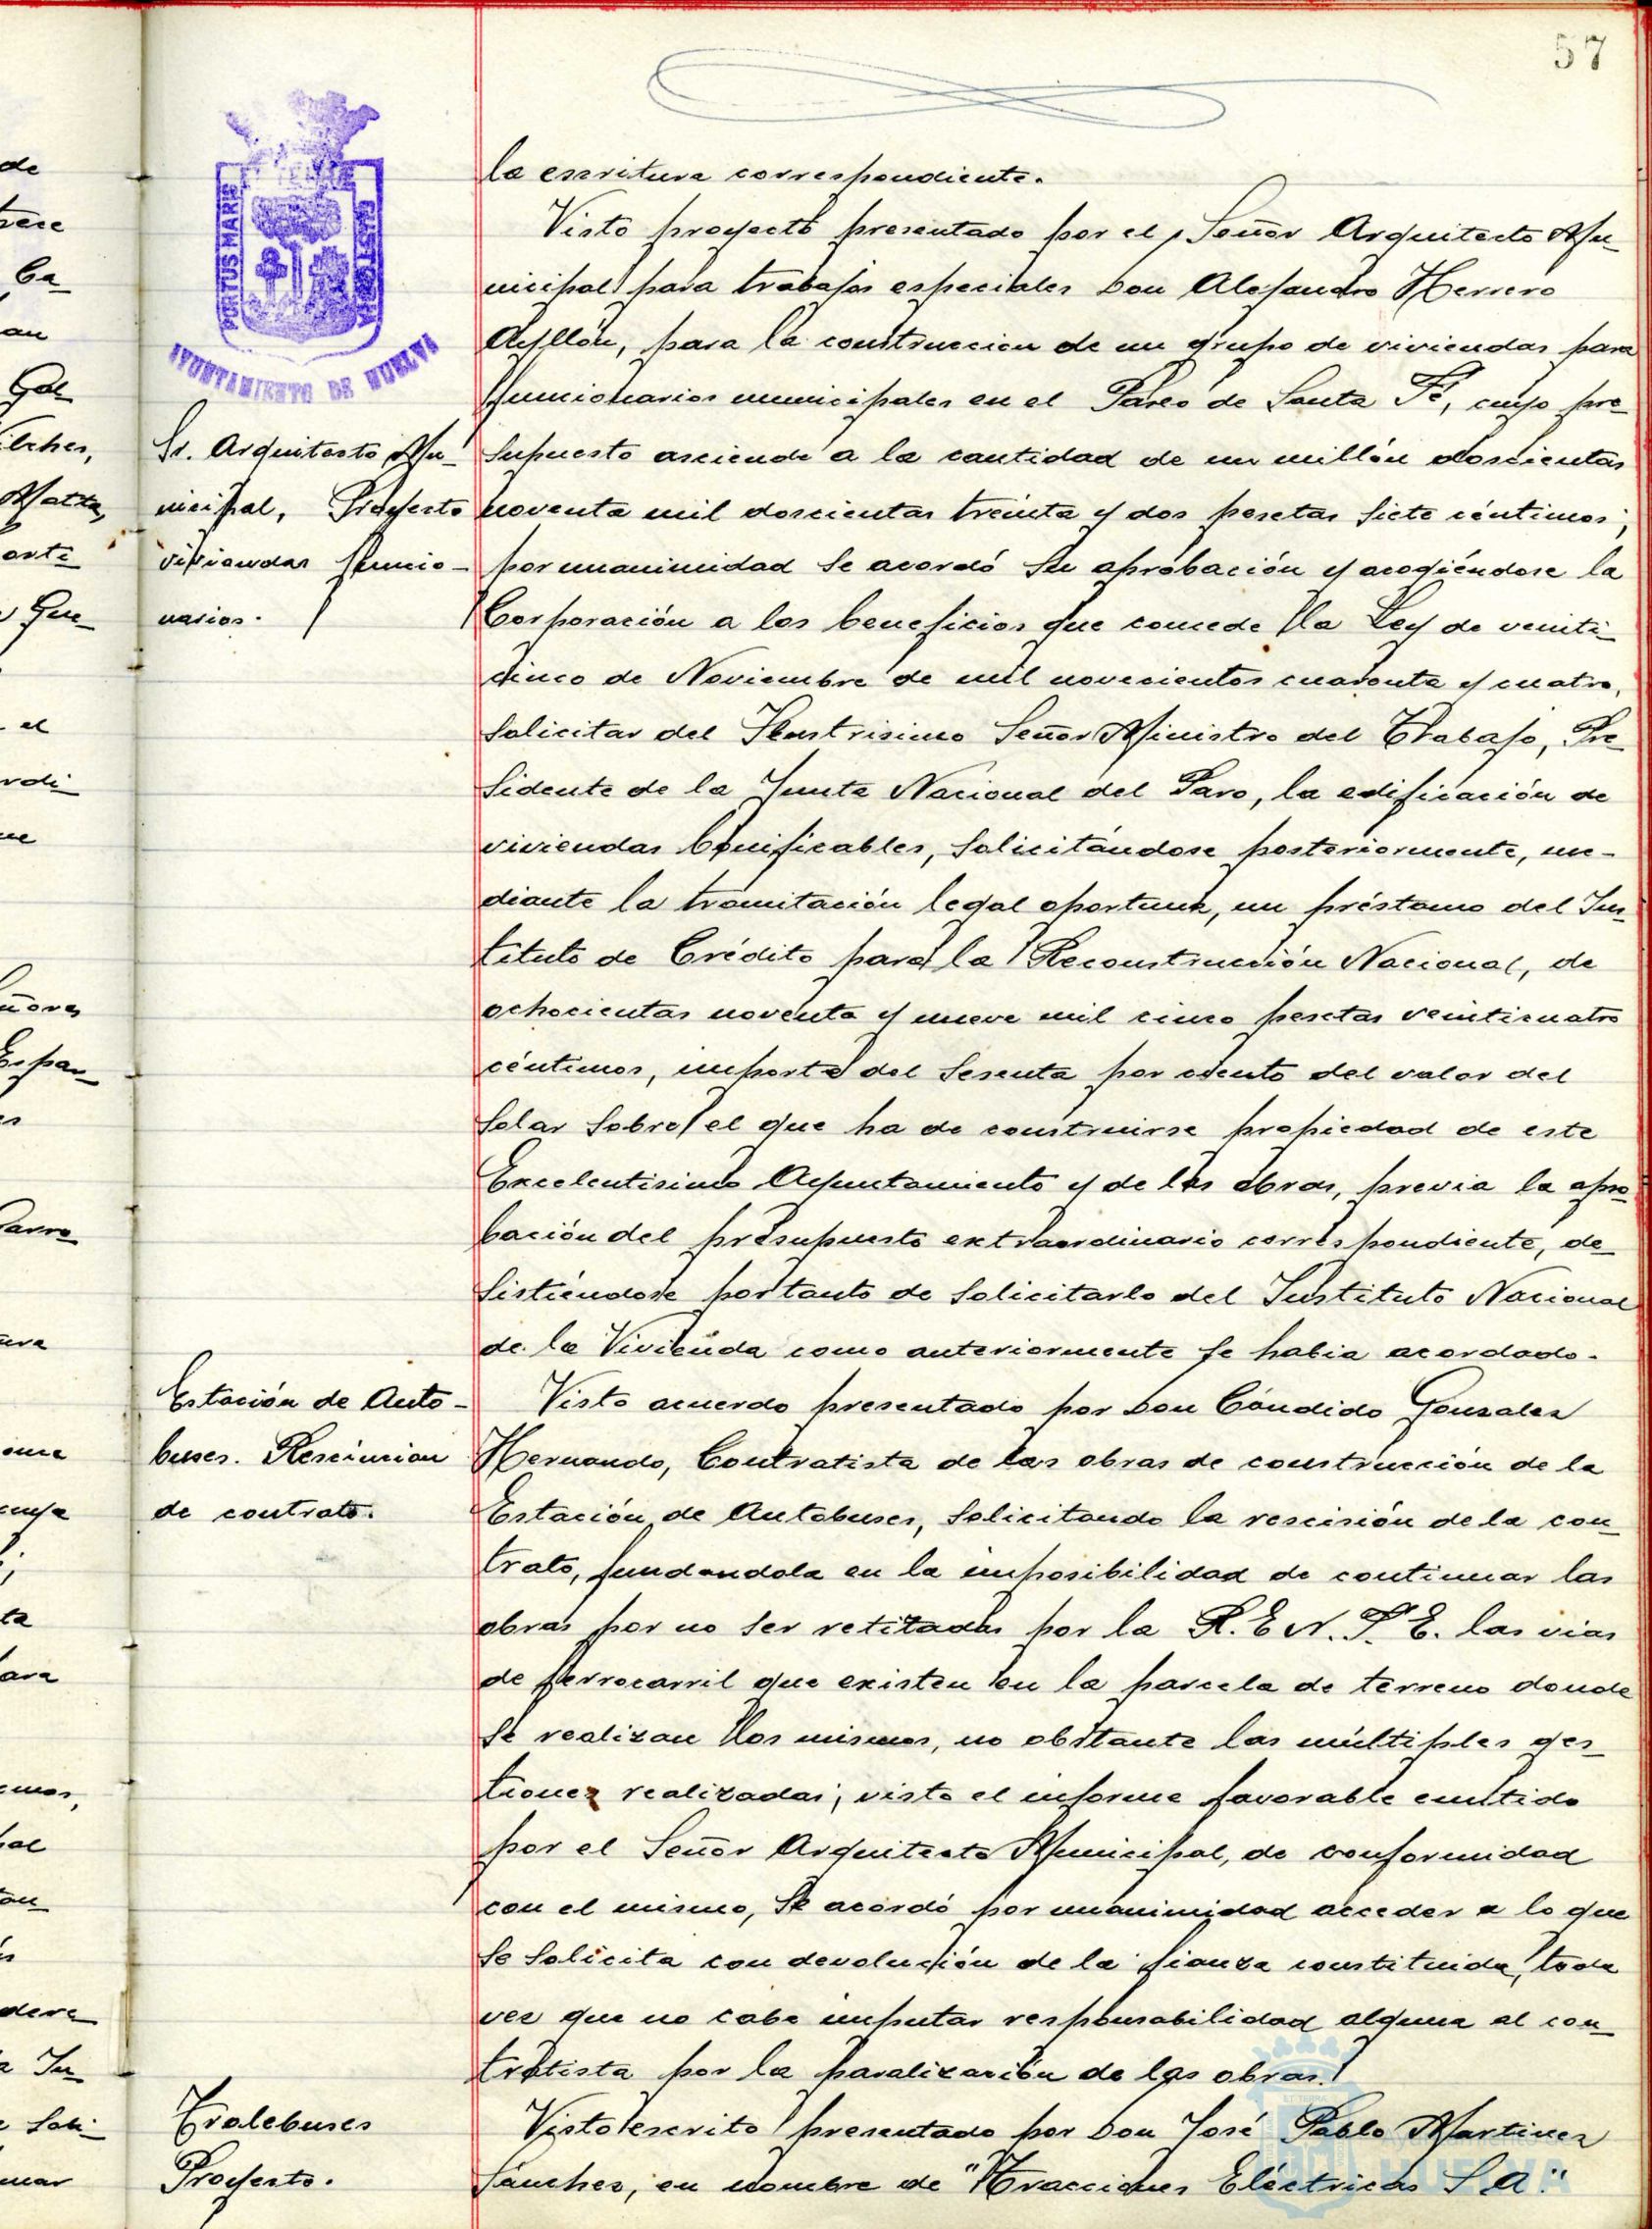 57
la escritura correspondiente.
Visto proyecto presentado por el Señor Arquitecto Mu-
nicipal para trabajos especiales Don Alejandro Herrero
Ayllón, para la construccion de un grupo de viviendas para
funcionarios municipales en el Paseo de Santa Fé, cuyo pre-
supuesto asciende a la cantidad de un millón doscientas
noventa mil doscientas treinta y dos pesetas siete céntimos;
por unanimidad se acordó su aprobación y acogiéndose la
Corporación a los beneficios que concede la Ley de veinti-
cinco de Noviembre de mil novecientos cuarenta y cuatro,
solicitar del Ilustrisimo Señor Ministro del Trabajo, Pre-
sidente de la Junta Nacional del Paro, la edificación de
viviendas bonificables, solicitándose posteriormente, me-
diante la tramitación legal oportuna, un préstamo del Ins-
tituto de Crédito para la Reconstrucción Nacional, de
ochocientas noventa y nueve mil cinco pesetas veinticuatro
céntimos, importe del sesenta por ciento del valor del
solar sobre el que ha de construirse propiedad de este
Excelentisimo Ayuntamiento y de las obras, previa la apro-
bación del presupuesto extraordinario correspondiente, de-
sistiéndose por tanto de solicitarlo del Instituto Nacional
de la Vivienda como anteriormente se habia acordado.
Visto acuerdo presentado por Don Cándido Gonzalez
Hernando, Contratista de las obras de construcción de la
Estación de Autobuses, solicitando la rescisión de la con-
trato, fundandola en la imposibilidad de continuar las
obras por no ser retitadas por la R.E.N.F.E. las vias
de ferrocarril que existen en la parcela de terreno donde
se realizan los mismos, no obstante las múltiples ges-
tiones realizadas; visto el informe favorable emitido
por el Señor Arquitecto Municipal, de conformidad
con el mismo, se acordó por unanimidad acceder a lo que
se solicita con devolución de la fianza constituida, toda
vez que no cabe imputar responsabilidad alguna al con-
tratista por la paralización de las obras.
Visto escrito presentado por Don José Pablo Martinez
Sánchez, en nombre de "Tracciones Eléctricas S.A."
PORTUS MARIS
ET TERRE
AYUNTAMIENTO DE HUELVA
Sr. Arquitecto Mu-
nicipal, Proyecto
viviendas funcio-
narios.
Estación de Auto-
buses. Rescincion
de contrato.
Trolebuses
Proyecto.
de
an
Gal
ilches,
Matta,
el
Espar-
ova
HUELVA